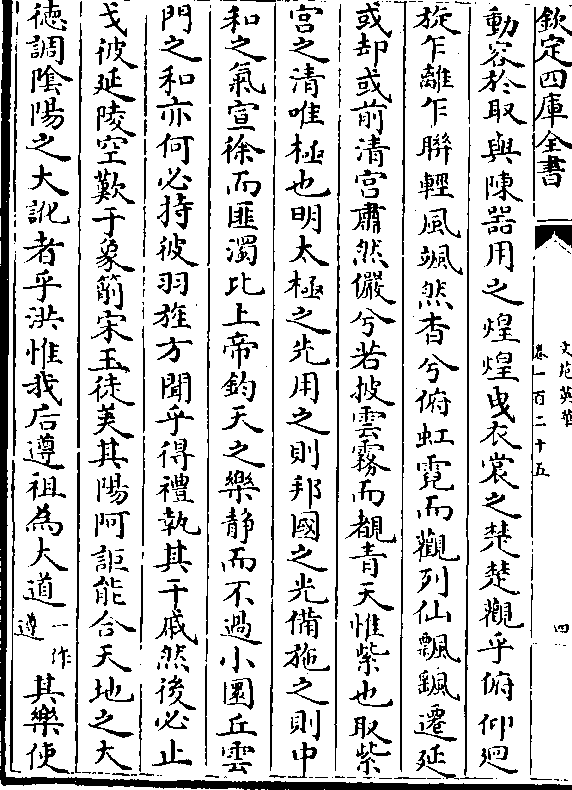 欽定四庫全書
文苑英華
卷一百二十五
四
動容於取與陳器用之煌煌曳衣裳之楚楚觀乎俯仰廻
旋乍離乍聨輕風颯然杳兮俯虹霓而觀列仙飄飖遷延
或却或前清宮肅然儼兮若披雲霧而覩青天惟紫也取紫
宮之清唯極也明太極之先用之則邦國之光備施之則中
和之氣宣徐而匪濁比上帝鈞天之樂静而不過小圜丘雲
門之和亦何必持彼羽旌方聞乎得禮執其干戚然後必止
戈彼延陵空歎于象箾宋玉徒美其陽阿詎能合天地之大
徳調隂陽之大訛者乎洪惟我后遵祖為大道一作遵其樂使